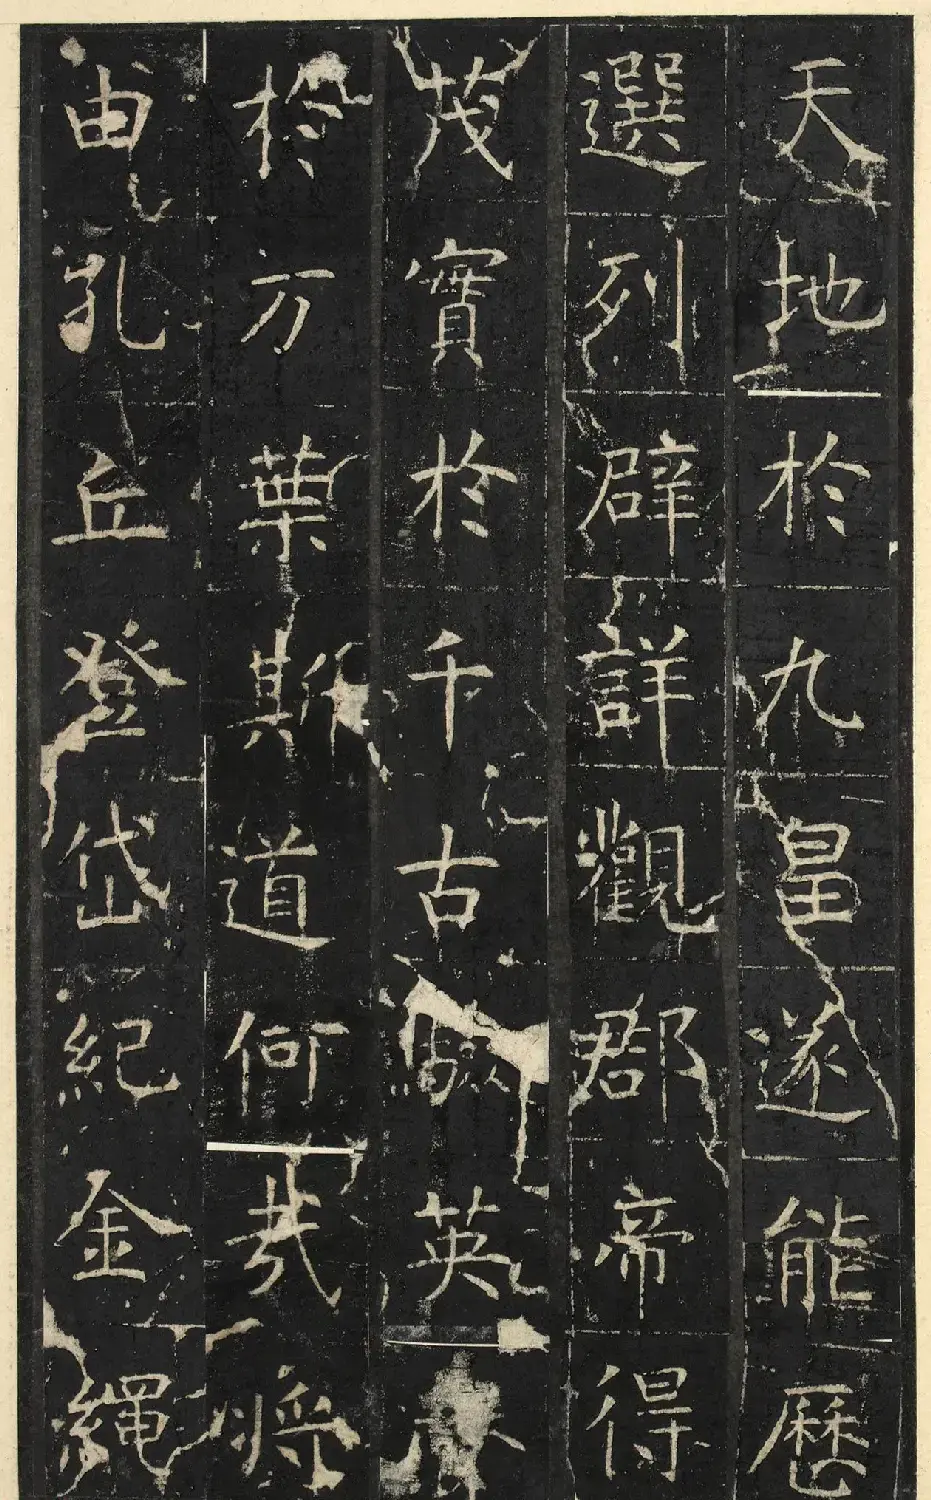 天地於九皇遂能歷
選列辟詳觀郡帝得
茂實於千古驗英
於万葉斯道何哉將
由孔丘登岱紀金繩